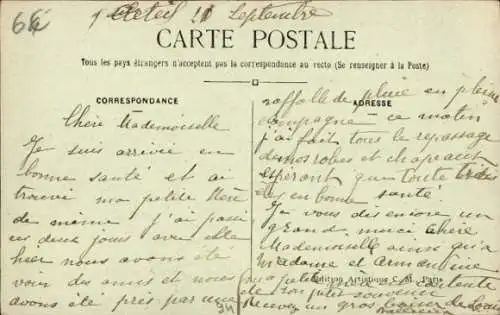 Créteil 21 Septembre
CARTE POSTALE
Tous les pays étrangers n'acceptent pas la correspondance au recto (Se renseigner à la Poste)
CORRESPONDANCE
Chère Mademoiselle
Je suis arrivée en
bonne santé et ai
trouvé ma petite Mère
de même j'ai passé
ces deux jours avec elle
hier nous avons été
voir des amis et nous
avons été pris par une
34
ADRESSE
raffalle de pluie en pleine
campagne ce matin
j'ai fait tous le repassage
de mes robes et chapeaux
espérant que toute
en bonne santé
Je vous dis encore un
grand merci chère
Mademoiselle ainsi qu'à
Madame et Armandine
ma petite contente
de son petit souvenir
Recevez un gros baiser de
Edition Artistique C. M. Paris